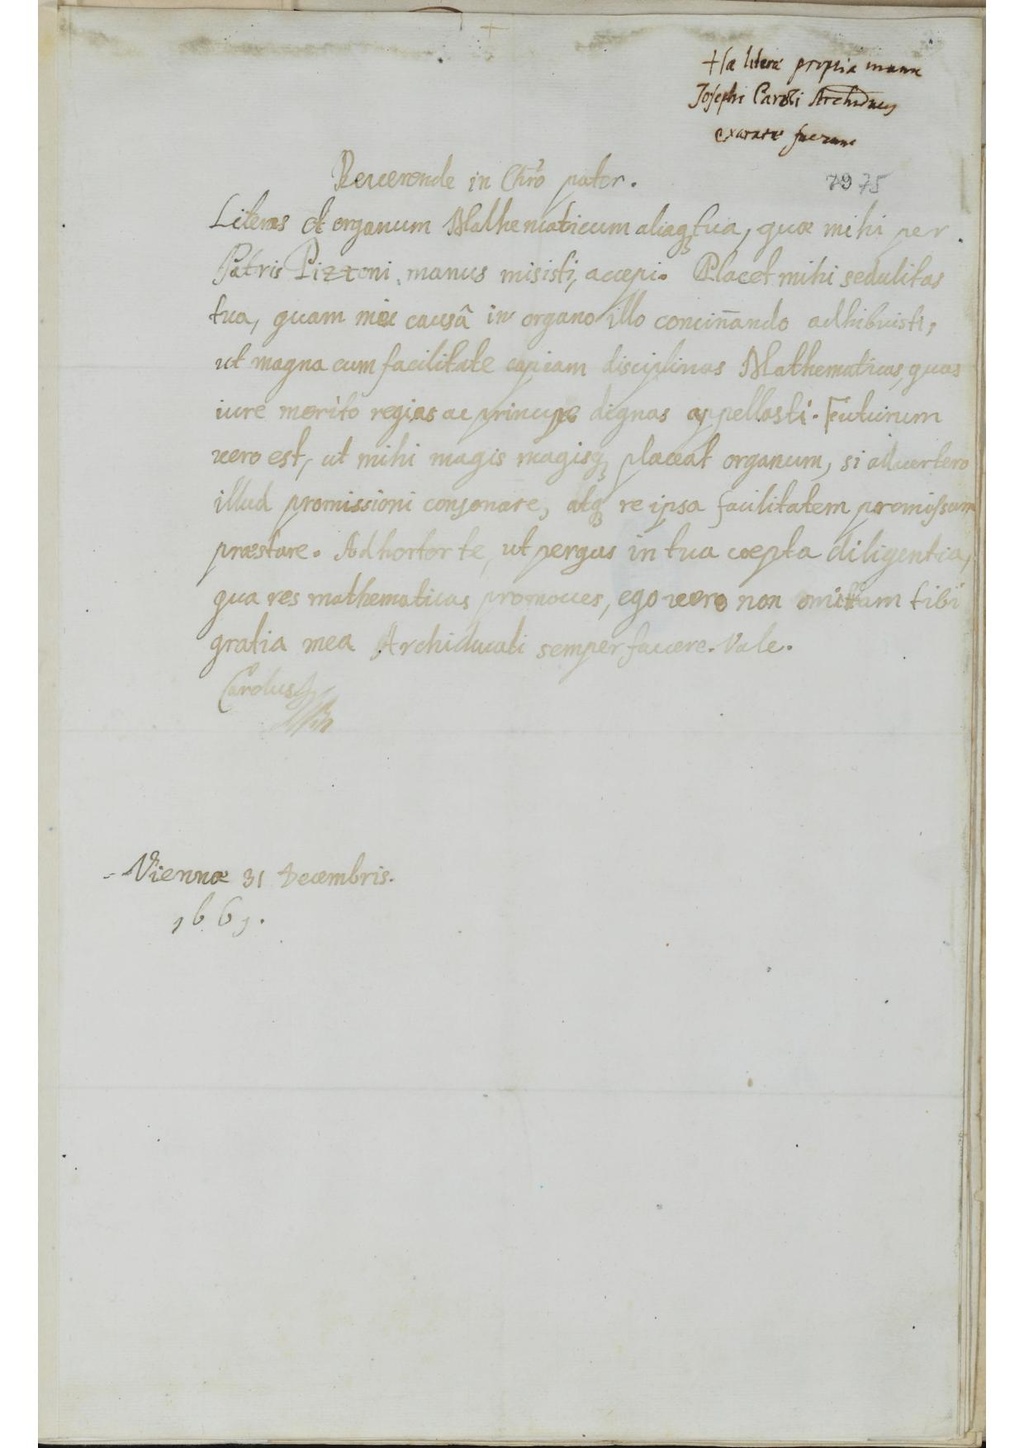 Hæ literæ propria manu
Josephi Caroli Archiducis
exaratæ fuerunt
Reuerende in Chro pater.
7975
Literas et organum Mathematicum aliaq; tua, quæ mihi per
Patris Pizzoni manus misisti, accepi. Placet mihi sedulitas
tua, quam mei causâ in organo illo concin̄ando adhibuisti,
ut magna cum facilitate capiam disciplinas Mathematicas, quas
iure merito regias ac principe dignas appellasti. Futurum
uero est, ut mihi magis magisq; placeat organum, si aduertero
illud promissioni consonare, atq; re ipsa facilitatem promissam
præstare. Adhortor te, ut pergas in tua cœpta diligentia,
qua res mathematicas promoues, ego uero non omittam tibi
gratia mea Archiducali semper fauere. Vale.
Carolus
Viennæ 31 Decembris.
1661.